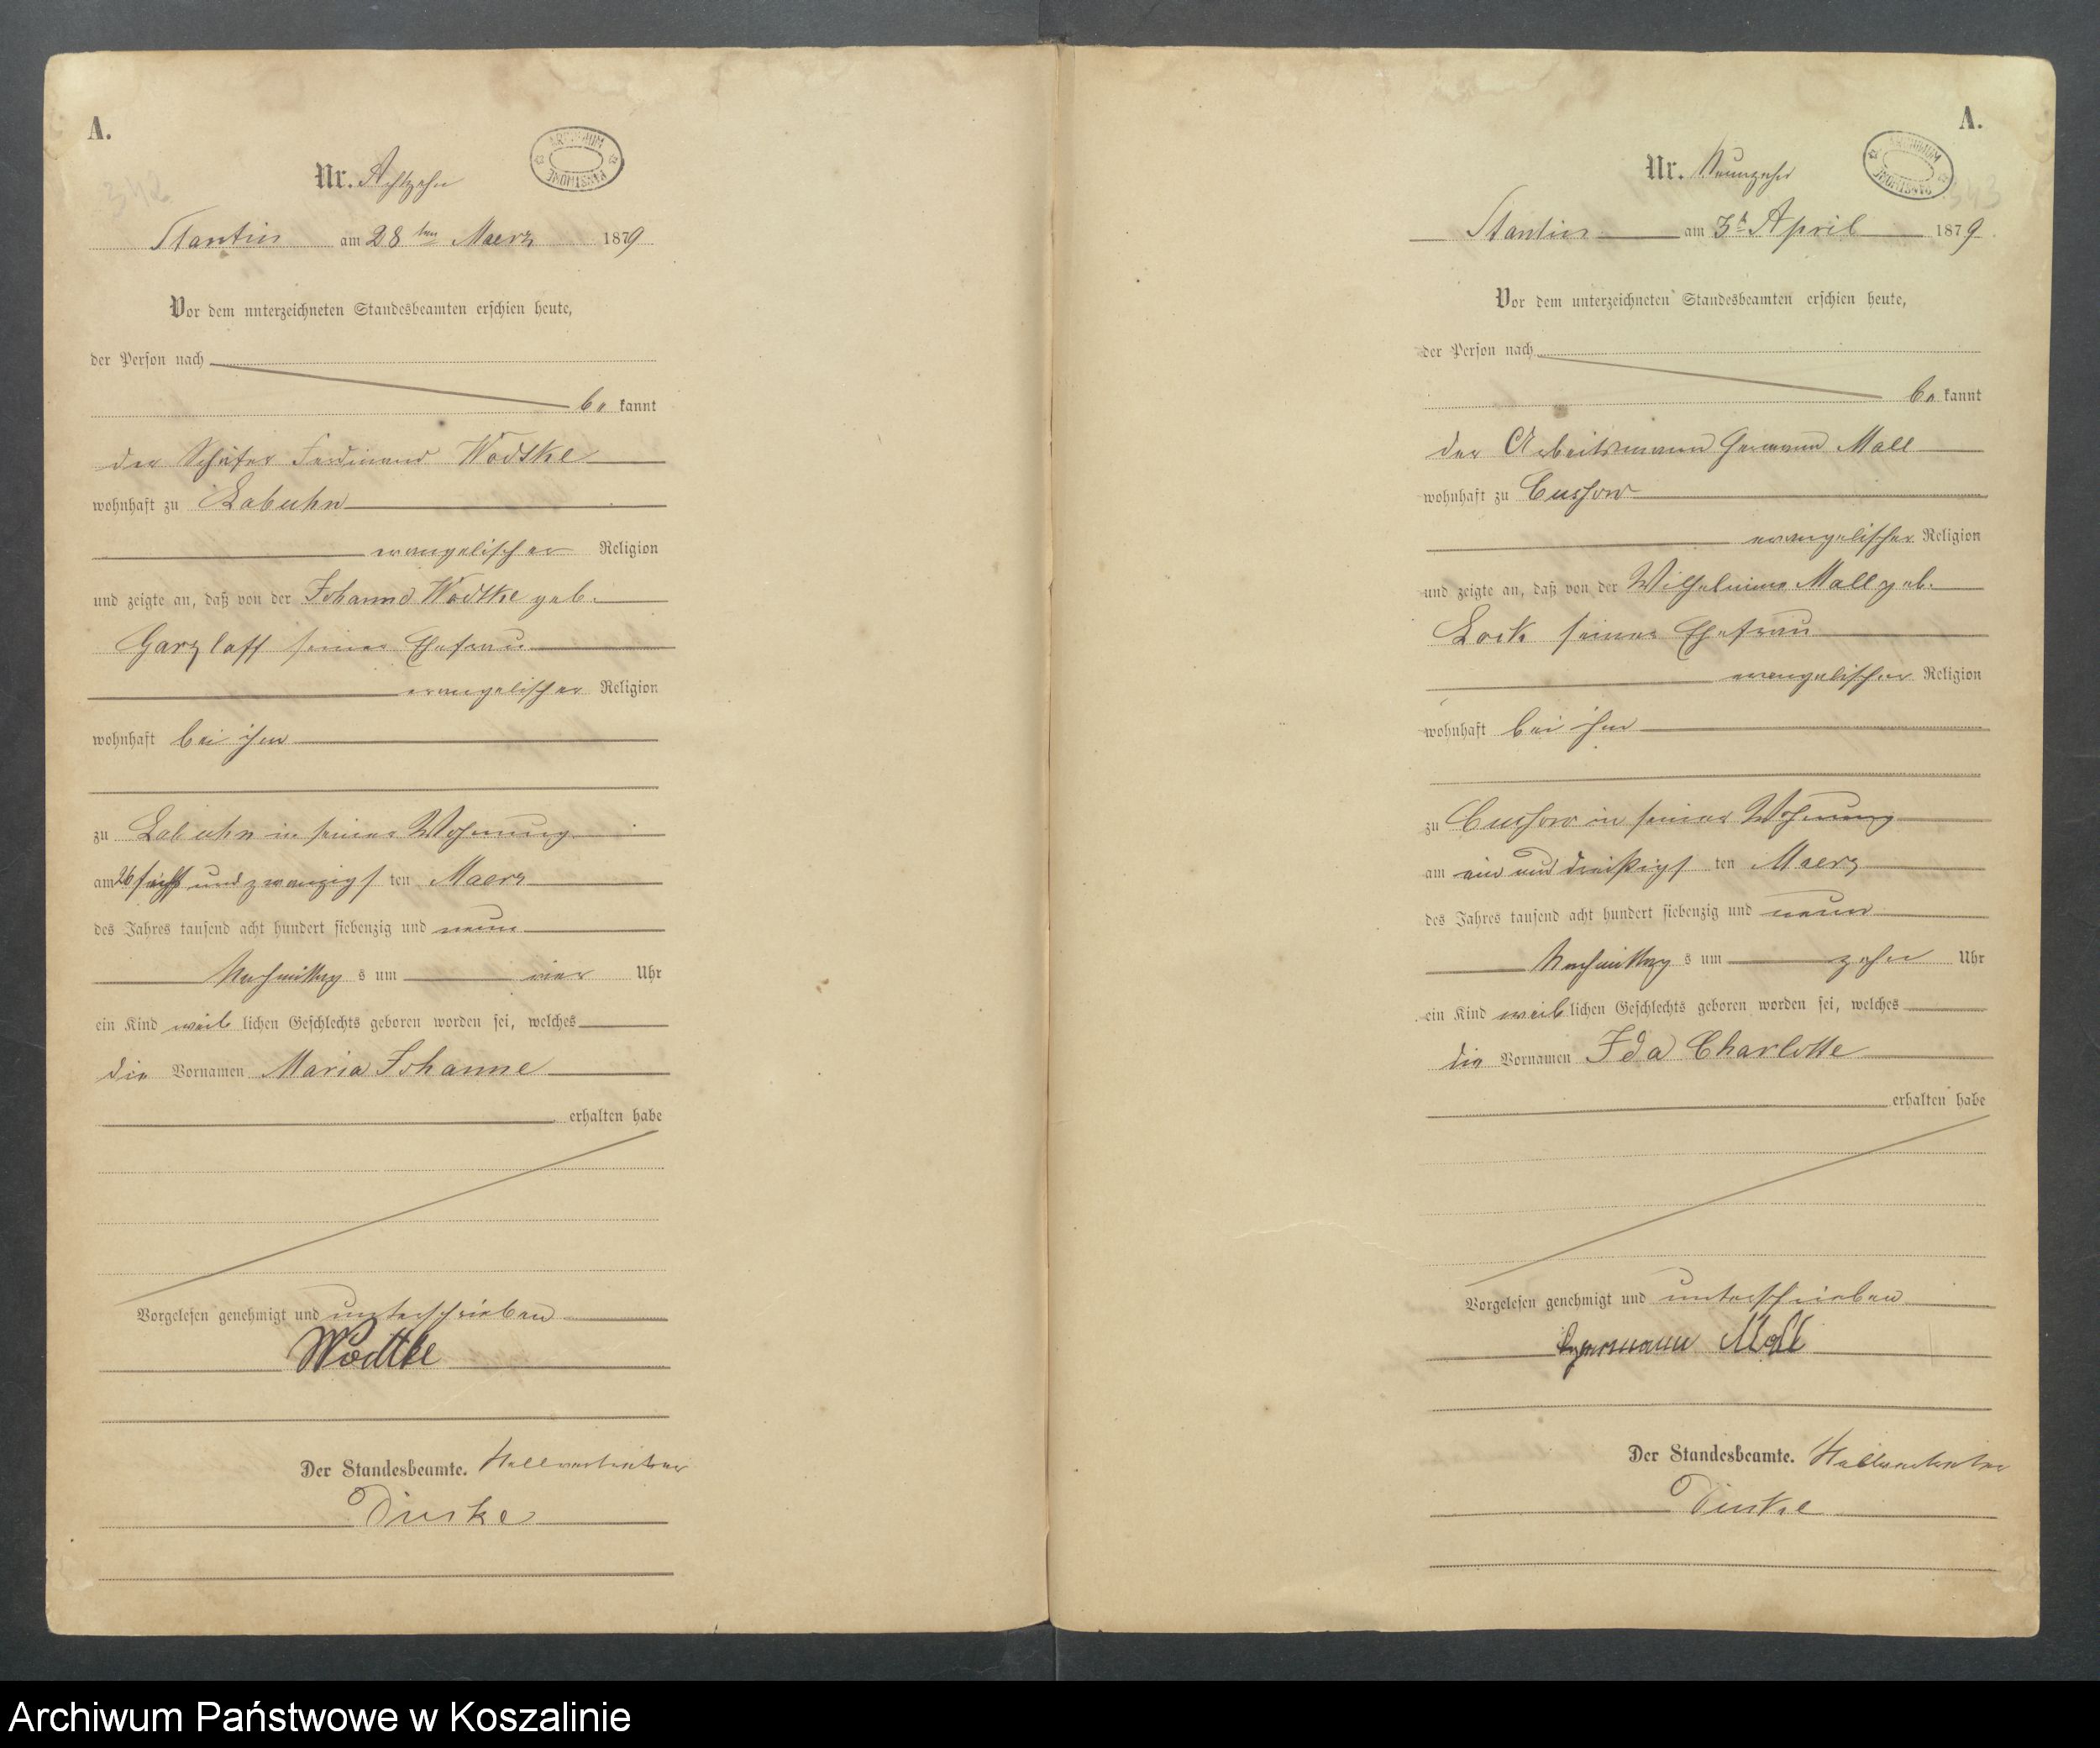 A.
342
ARCHIWUM PAŃSTWOWE
Nr. Achtzehn
Stantin am 28ten Maerz 1879
Vor dem unterzeichneten Standesbeamten erschien heute,
der Person nach
be kannt
der Schäfer Ferdinand Wodtke
wohnhaft zu Labuhn
evangelischer Religion
und zeigte an, daß von der Johanne Wodtke geb.
Garzlaff seiner Ehefrau
evangelischer Religion
wohnhaft bei ihm
zu Labuhn in seiner Wohnung
am 26 sechs und zwanzigs ten Maerz
des Jahres tausend acht hundert siebenzig und neun
Nachmittag s um vier Uhr
ein Kind weib lichen Geschlechts geboren worden sei, welches
die Vornamen Maria Johanne
erhalten habe
Vorgelesen genehmigt und unterschrieben
Wodtke
Der Standesbeamte. Stellvertreter
A.
343
ARCHIWUM PAŃSTWOWE
Nr. Neunzehn
Stantin am 3t April 1879
Vor dem unterzeichneten Standesbeamten erschien heute,
der Person nach
be kannt
der Arbeitsmann Hermann Mall
wohnhaft zu Cussow
evangelischer Religion
und zeigte an, daß von der Wilhelmine Mall geb.
seiner Ehefrau
evangelischer Religion
wohnhaft bei ihm
zu Cussow in seiner Wohnung
am ein und dreißigs ten Maerz
des Jahres tausend acht hundert siebenzig und neun
Nachmittag s um zehn Uhr
ein Kind weib lichen Geschlechts geboren worden sei, welches
die Vornamen Ida Charlotte
erhalten habe
Vorgelesen genehmigt und unterschrieben
Hermann Mall
Der Standesbeamte. Stellvertreter
Archiwum Państwowe w Koszalinie